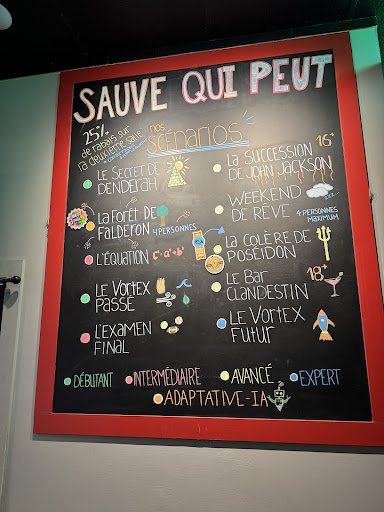 SAUVE QUI PEUT
25%
de rabais sur
la deuxième salle
nos
scénarios
LE SECRET DE
DENDERAH
LA FORÊT DE
FALDERON 4 PERSONNES
L'ÉQUATION c²=a²+b²
LE VORTEX
PASSÉ
L'EXAMEN
FINAL
LA SUCCESSION 16+
DE JOHN JACKSON
WEEKEND
DE RÊVE 4 PERSONNES
MAXIMUM
LA COLÈRE DE
POSÉIDON
LE BAR 18+
CLANDESTIN
LE VORTEX
FUTUR
DÉBUTANT INTERMÉDIAIRE AVANCÉ EXPERT
ADAPTATIVE-IA